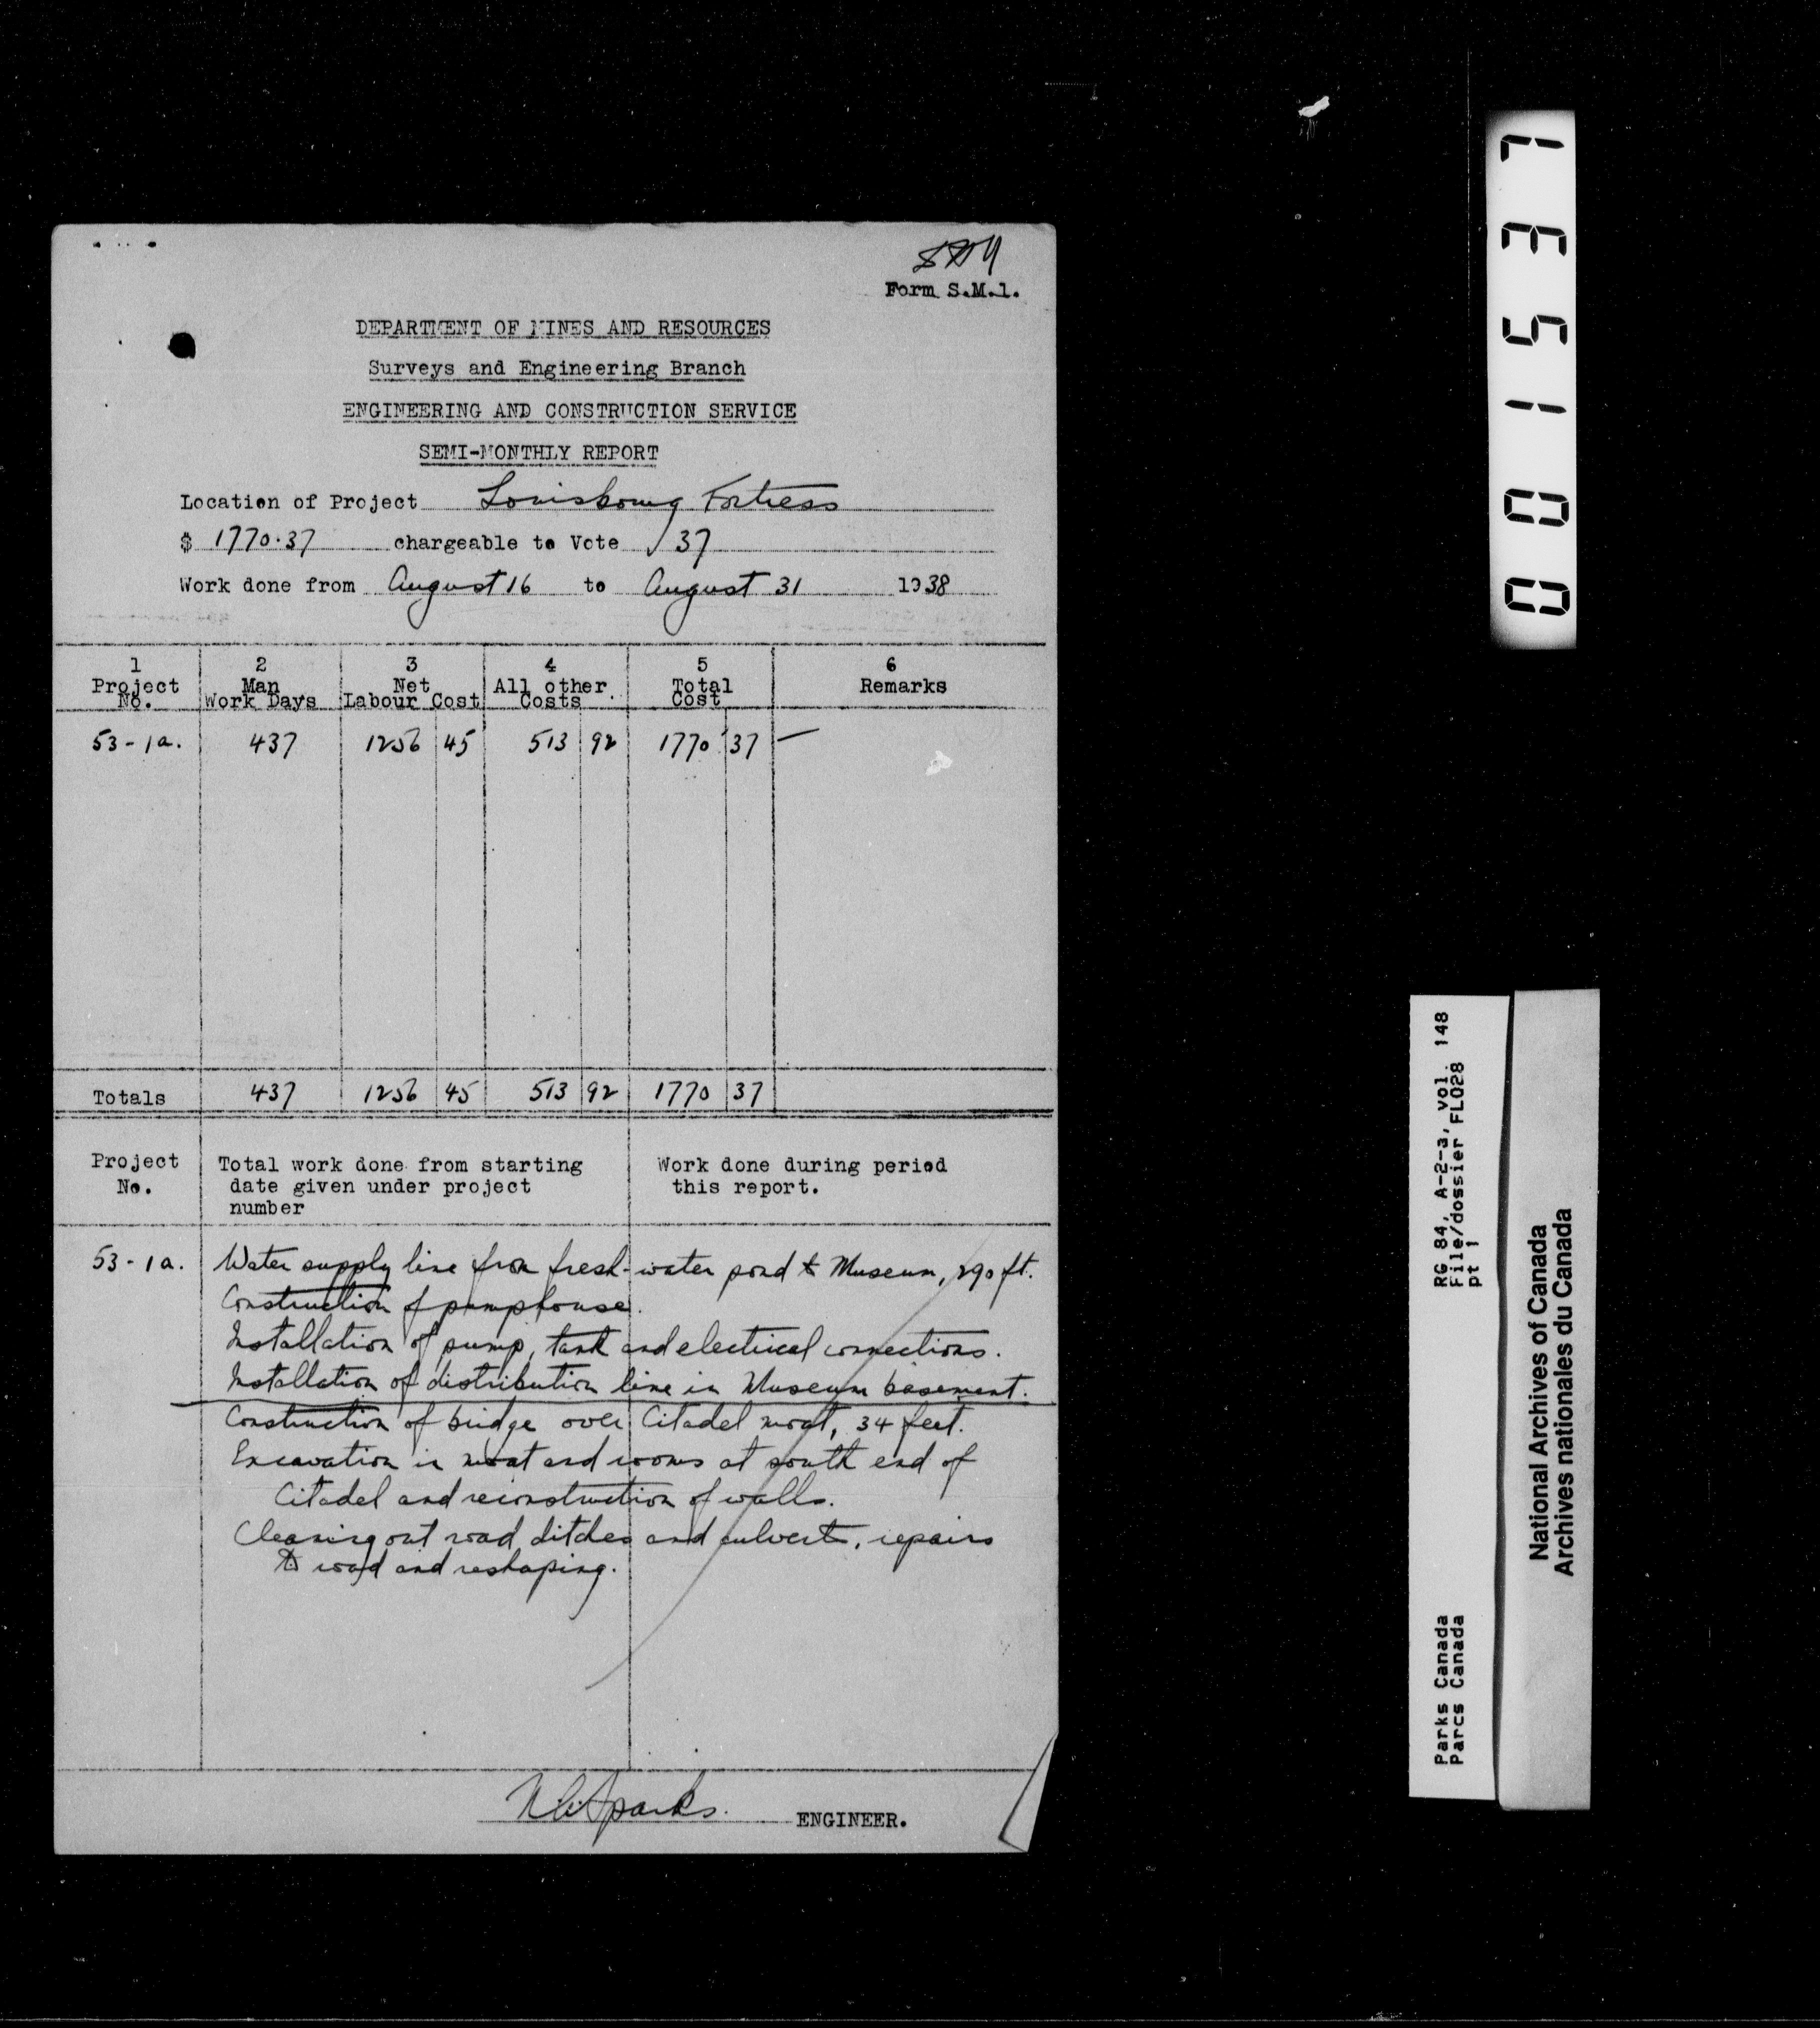 Form S.M.1.
DEPARTMENT OF MINES AND RESOURCES
Surveys and Engineering Branch
ENGINEERING AND CONSTRUCTION SERVICE
SEMI-MONTHLY REPORT
Location of Project Louisbourg Fortress
$ 1770.37 chargeable to Vote 37
Work done from August 16 to August 31 1938
1 2 3 4 5 6
Project No. Man Work Days Net Labour Cost All other Costs Total Cost Remarks
53-1a. 437 1256 45 513 92 1770 37 —
Totals 437 1256 45 513 92 1770 37
Project No.
Total work done from starting
date given under project
number
Work done during period
this report.
53-1a. Water supply line from fresh-water pond to Museum, 290 ft.
Construction of pumphouse.
Installation of pump, tank and electrical connections.
Installation of distribution line in Museum basement.
Construction of bridge over Citadel moat, 34 feet.
Excavation in moat and rooms at south end of
Citadel and reconstruction of walls.
Cleaning out road ditches and culverts, repairs
to road and reshaping.
Sparks. ENGINEER.
001537
RG 84, A-2-a, vol. 148
File/dossier FLO28
pt 1
Parks Canada
Parcs Canada
National Archives of Canada
Archives nationales du Canada